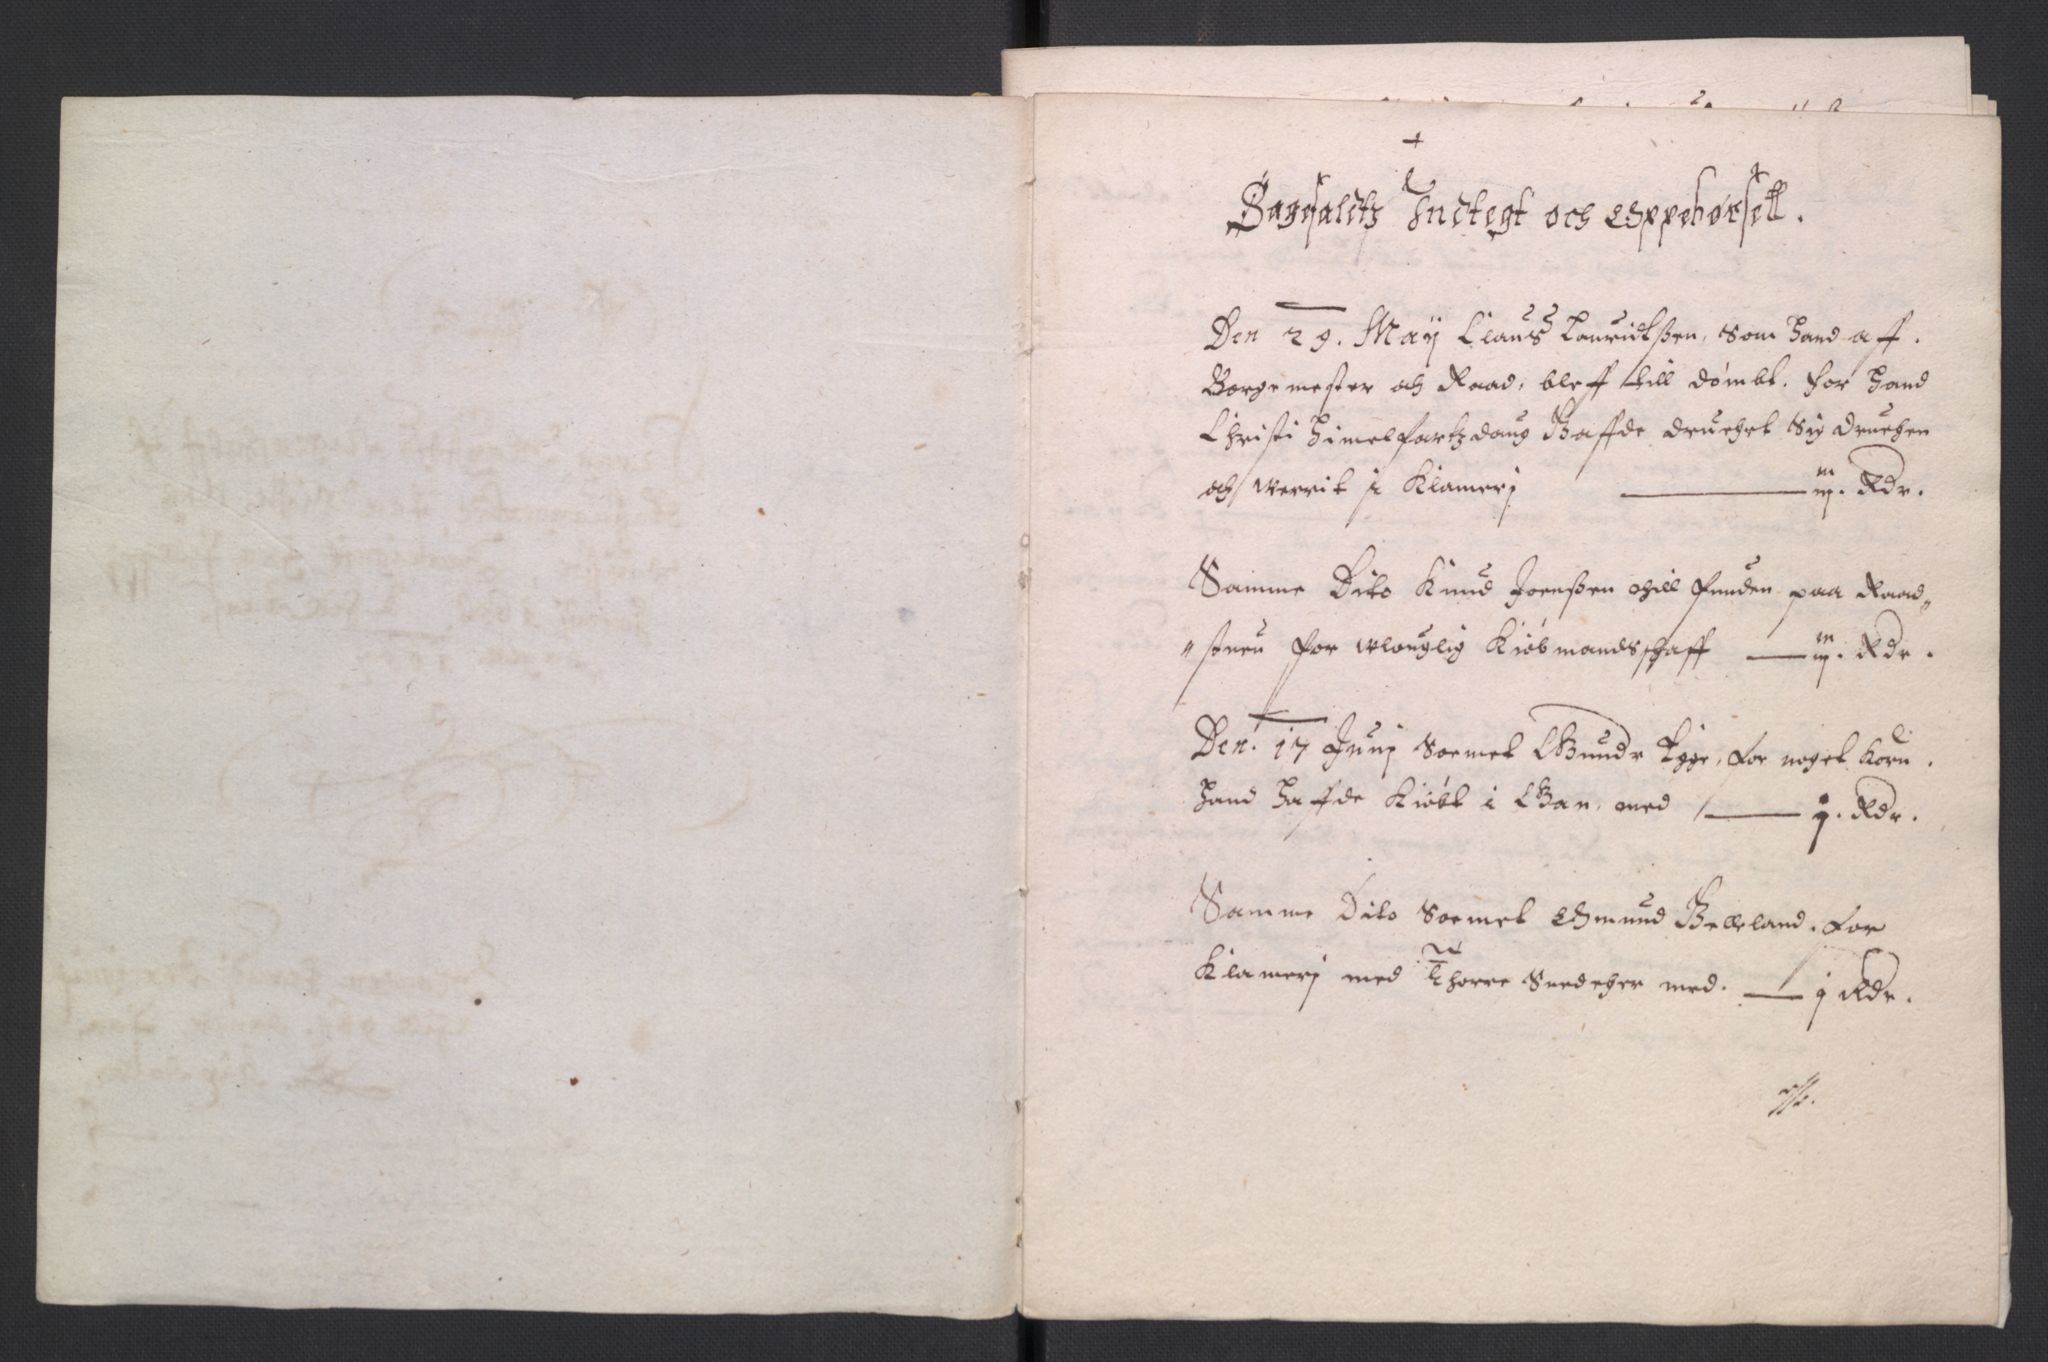 Sagefaldtz Indtegt och Oppebørsell.
Den 29. Maij Claus Lauridtßen, som hand aff
Borgemester och Raad, bleff till dømbt. for hand
Christi Himelfartz daug Haffde druchet sig druchen
och verrit i Klamerj iij. Rdr.
Samme Dito Knud Joenßen till funden paa Raad
stuen for vlouglig Kiøbmandschaff iij. Rdr.
Den. 17 Junij Soemet Gundr Tyge, for noget Korn
hand haffde Kiøbt i med j. Rdr.
Samme Dito Soemet Omund Belleland. for
Klamerj med Thorre Snedcher med. j Rdr.